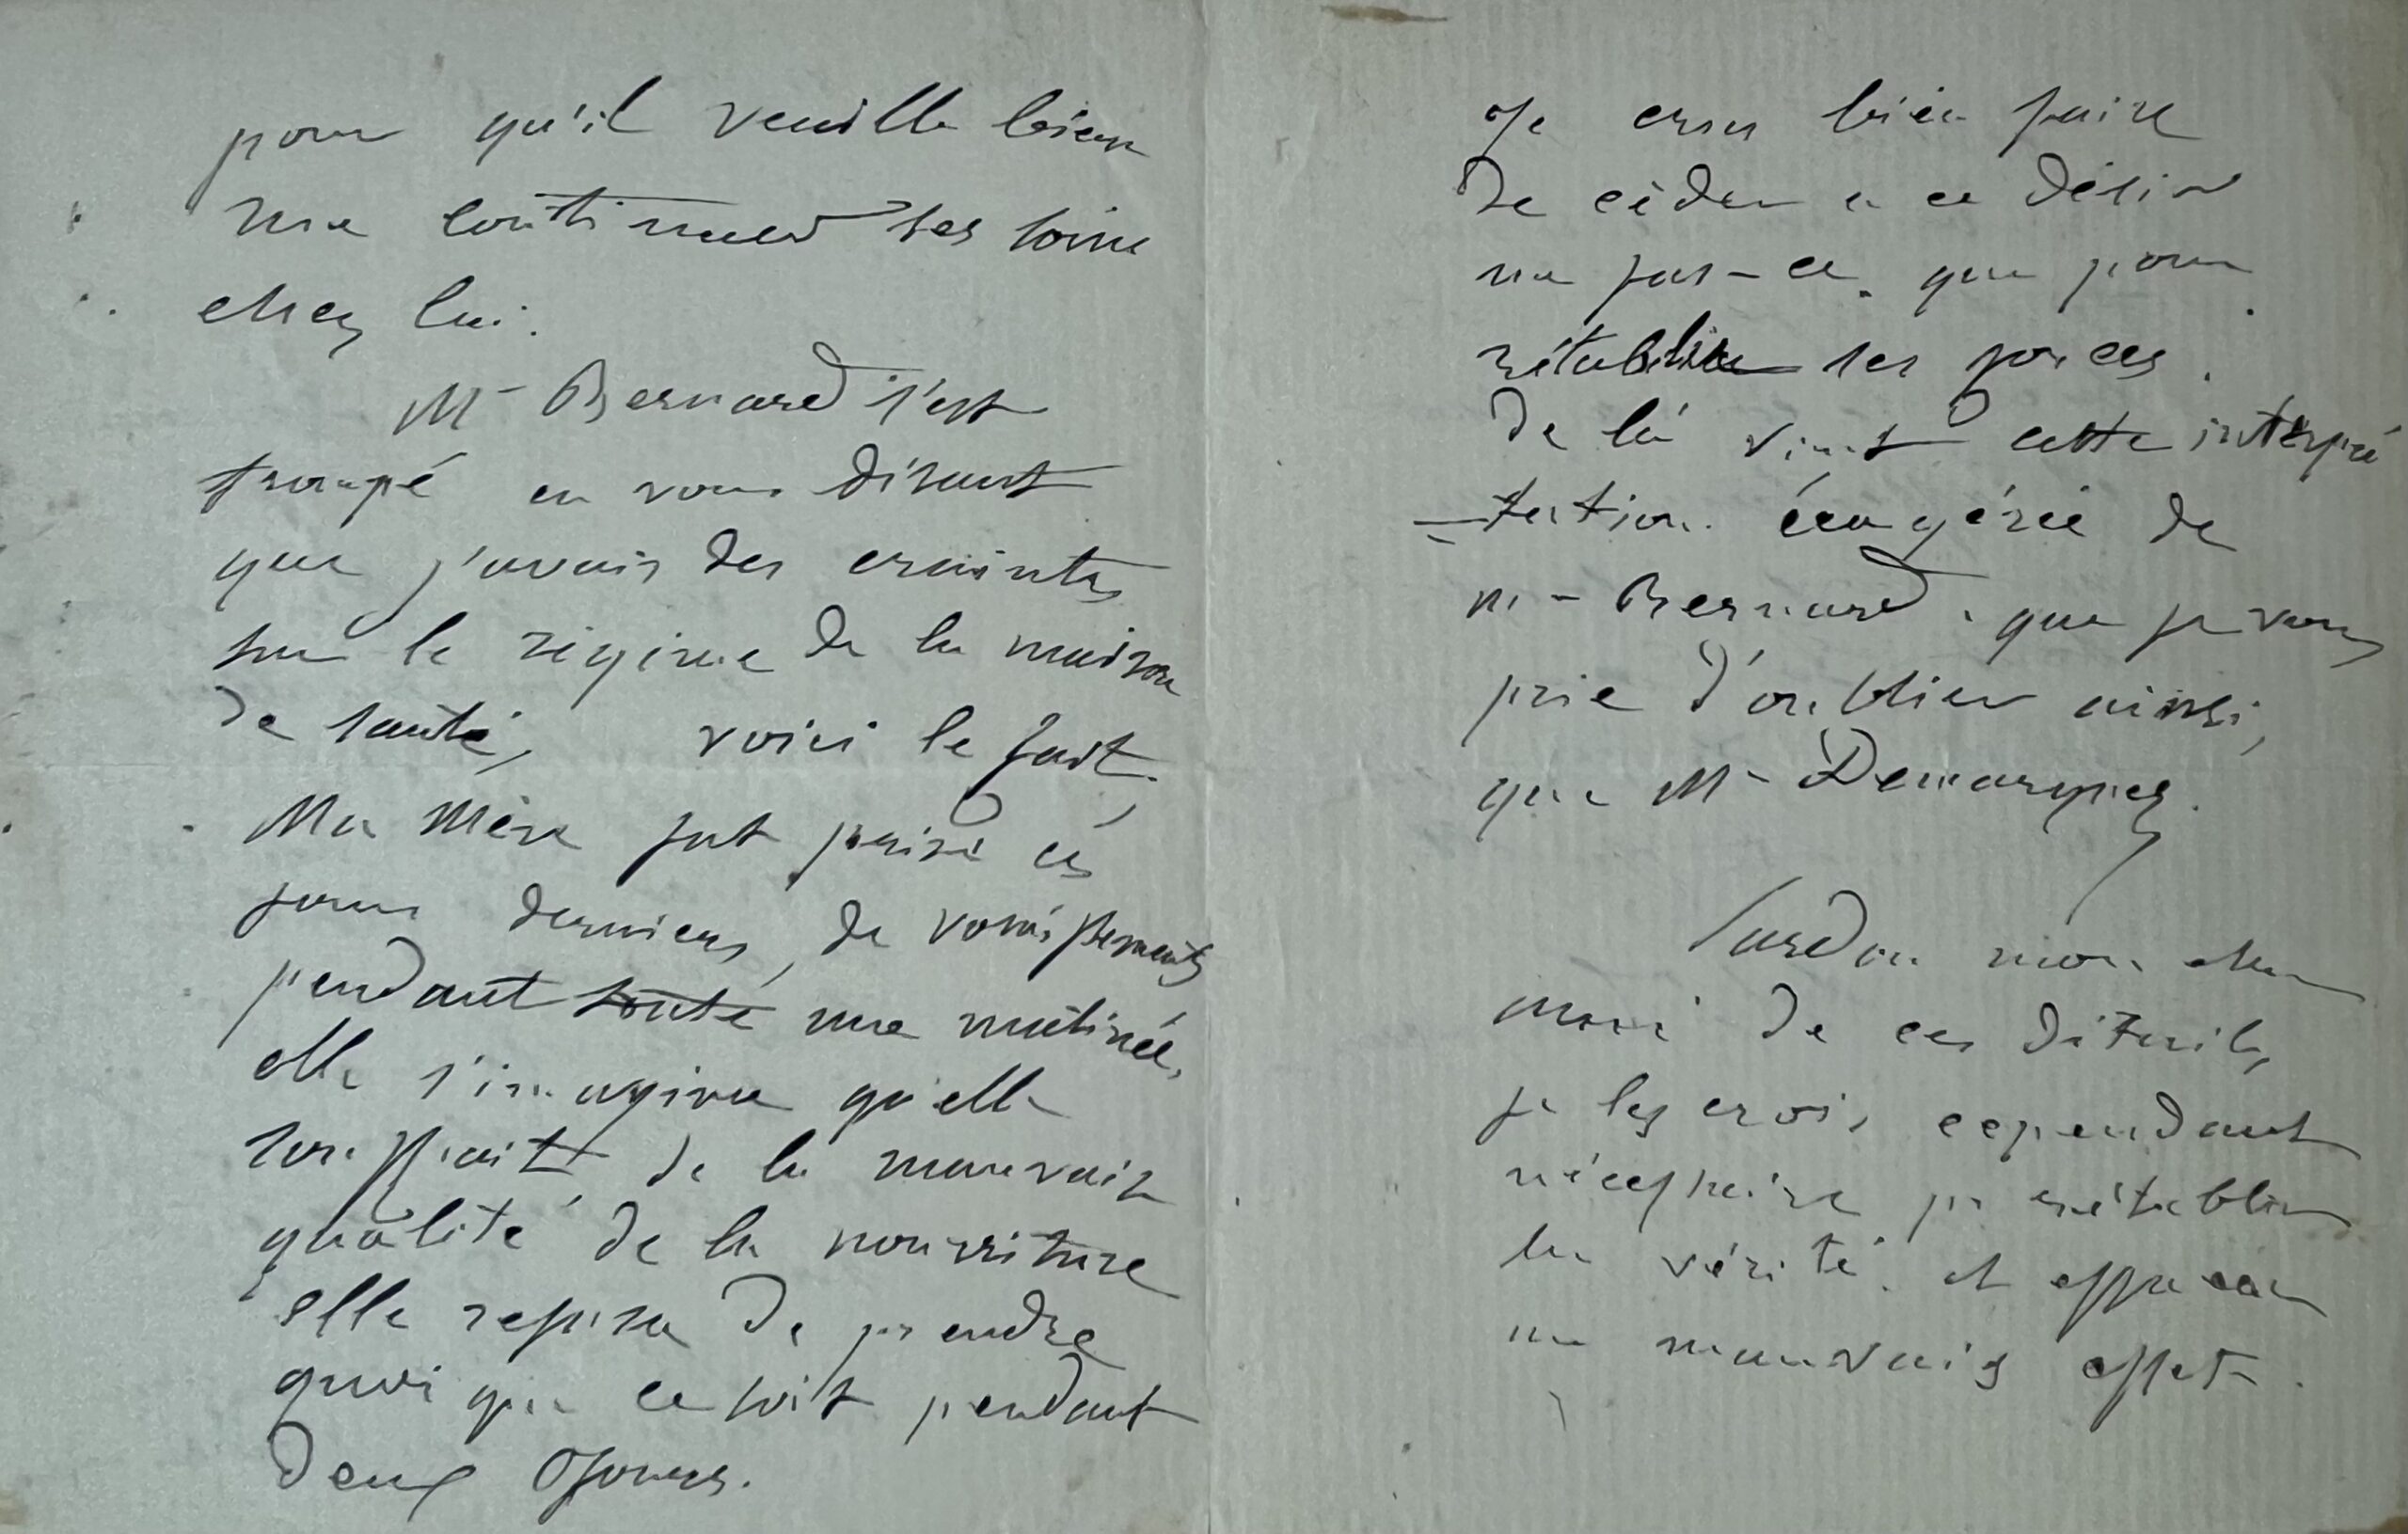 pour qu'il veuille bien
me continuer ses soins
chez lui.
Mr Bernard s'est
trompé en vous disant
que j'avais des craintes
sur le régime de la maison
de santé, voici le fait,
Ma Mère fut prise ces
jours derniers, de vomissements
pendant toute une matinée,
elle s'imagina qu'elle
souffrait de la mauvaise
qualité de la nourriture
elle refusa de prendre
quoi que ce soit pendant
deux Jours.
Je crus bien faire
de céder à ce désir
ne fus-ce que pour
rétablir ses forces.
De là vint cette interpré
-tation éxagérée de
mr Bernard que je vous
prie d'oublier ainsi,
que Mr Demarquez.
Pardon mon cher
ami de ces détails,
je les crois cependant
nécessaire pr rétablir
la vérité et effacer
un mauvais effet.